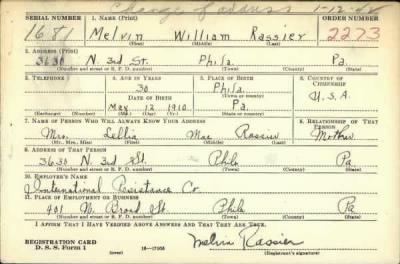 Change of address 1-12-42
SERIAL NUMBER 1. NAME (Print) ORDER NUMBER
1681 Melvin William Rassier 2273
(First) (Middle) (Last)
2. ADDRESS (Print)
3630 N. 3rd St. Phila. Pa.
(Number and street or R. F. D. number) (Town) (County) (State)
3. TELEPHONE 4. AGE IN YEARS 5. PLACE OF BIRTH 6. COUNTRY OF CITIZENSHIP
30 Phila.
DATE OF BIRTH (Town or county) U.S.A.
May 12 1910 Pa.
(Exchange) (No.) (Mo.) (Day) (Yr.) (State or country)
7. NAME OF PERSON WHO WILL ALWAYS KNOW YOUR ADDRESS 8. RELATIONSHIP OF THAT PERSON
Mrs. Lellia Mae Rassier Mother
(Mr., Mrs., Miss) (First) (Middle) (Last)
9. ADDRESS OF THAT PERSON
3630 N. 3rd St. Phila Pa
(Number and street or R. F. D. number) (Town) (County) (State)
10. EMPLOYER'S NAME
International Resistance Co.
11. PLACE OF EMPLOYMENT OR BUSINESS
401 N. Broad St. Phila Pa
(Number and street or R. F. D. number) (Town) (County) (State)
I AFFIRM THAT I HAVE VERIFIED ABOVE ANSWERS AND THAT THEY ARE TRUE.
REGISTRATION CARD
D. S. S. Form 1 (over) 16-17105 Melvin Rassier
(Registrant's signature)